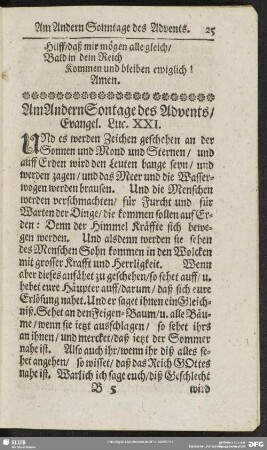 Am Andern Sonntage des Advents. 25
Hilff/ daß mir mögen alle gleich/
Bald in dem Reich
Kommen und bleiben ewiglich!
Amen.
Am Andern Sontage des Advents/
Evangel. Luc. XXI.
UNd es werden Zeichen geschehen an der
Sonnen und Mond und Sternen/ und
auff Erden wird den Leuten bange seyn/ und
werden zagen/ und das Meer und die Wasser-
wogen werden brausen. Und die Menschen
werden verschmachten/ für Furcht und für
Warten der Dinge/ die kommen sollen auf Er-
den: Denn der Himmel Kräffte sich bewe-
gen werden. Und alsdenn werden sie sehen
des Menschen Sohn kommen in den Wolcken
mit grosser Krafft und Herrligkeit. Wenn
aber dieses anfähet zu geschehen/ so sehet auff/ u.
hebet eure Häupter auff/ darum/ daß sich eure
Erlösung nahet. Und er saget ihnen ein Gleich-
niß. Sehet an den Feigen-Baum/ u. alle Bäu-
me/ wenn sie ietzt ausschlagen/ so sehet ihrs
an ihnen/ und mercket/ daß ietzt der Sommer
nahe ist. Also auch ihr/ wenn ihr diß alles se-
het angehen/ so wisset/ daß das Reich GOttes
nahe ist. Warlich ich sage euch/ diß Geschlecht
B 5 wird
SLUB
DFG